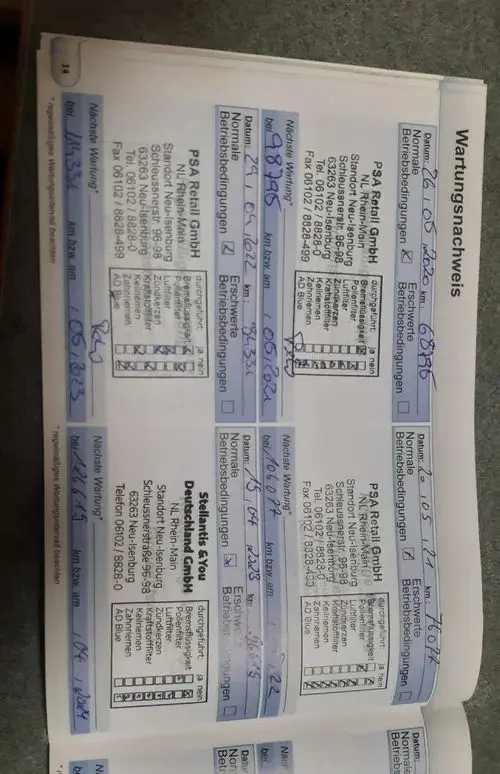 Wartungsnachweis
Datum: 26 . 05 . 2020 km: 68796
Normale Betriebsbedingungen ☒ Erschwerte Betriebsbedingungen ☐
PSA Retail GmbH
NL Rhein-Main
Standort Neu-Isenburg
Schleussnerstr. 96-98
63263 Neu-Isenburg
Tel. 06102 / 8828-0
Fax 06102 / 8828-499
durchgeführt: ja nein
Bremsflüssigkeit
Pollenfilter
Luftfilter
Zündkerzen
Kraftstofffilter
Keilriemen
Zahnriemen
AD Blue
Nächste Wartung*
bei 98796 km bzw. am . 05 . 2021
Datum: 20 . 05 . 21 km: 76077
Normale Betriebsbedingungen Erschwerte Betriebsbedingungen
PSA Retail GmbH
NL Rhein-Main
Standort Neu-Isenburg
Schleussnerstr. 96-98
63263 Neu-Isenburg
Tel. 06102 / 8828-0
Fax 06102 / 8828-499
durchgeführt: ja nein
Bremsflüssigkeit
Pollenfilter
Luftfilter
Zündkerzen
Kraftstofffilter
Keilriemen
Zahnriemen
AD Blue
Nächste Wartung*
bei 106077 km bzw. am 22
Datum: 29 . 04 . 2022 km:
Normale Betriebsbedingungen Erschwerte Betriebsbedingungen
PSA Retail GmbH
NL Rhein-Main
Standort Neu-Isenburg
Schleussnerstr. 96-98
63263 Neu-Isenburg
Tel. 06102 / 8828-0
Fax 06102 / 8828-499
durchgeführt: ja nein
Bremsflüssigkeit
Pollenfilter
Luftfilter
Zündkerzen
Kraftstofffilter
Keilriemen
Zahnriemen
AD Blue
Nächste Wartung*
bei km bzw. am . 05 . 2023
Datum: 15 . 04 . 2023 km:
Normale Betriebsbedingungen Erschwerte Betriebsbedingungen
Stellantis &You
Deutschland GmbH
NL Rhein-Main
Standort Neu-Isenburg
Schleussnerstraße 96-98
63263 Neu-Isenburg
Telefon 06102 / 8828-0
durchgeführt: ja nein
Bremsflüssigkeit
Pollenfilter
Luftfilter
Zündkerzen
Kraftstofffilter
Keilriemen
Zahnriemen
AD Blue
Nächste Wartung*
bei km bzw. am . 04 . 2024
* regelmäßiges Wartungsintervall beachten
* regelmäßiges Wartungsintervall beachten
14
Datum:
Normale
Betriebsbed
Nächs
bei
Datum
Norn
Betr
Näc
bei